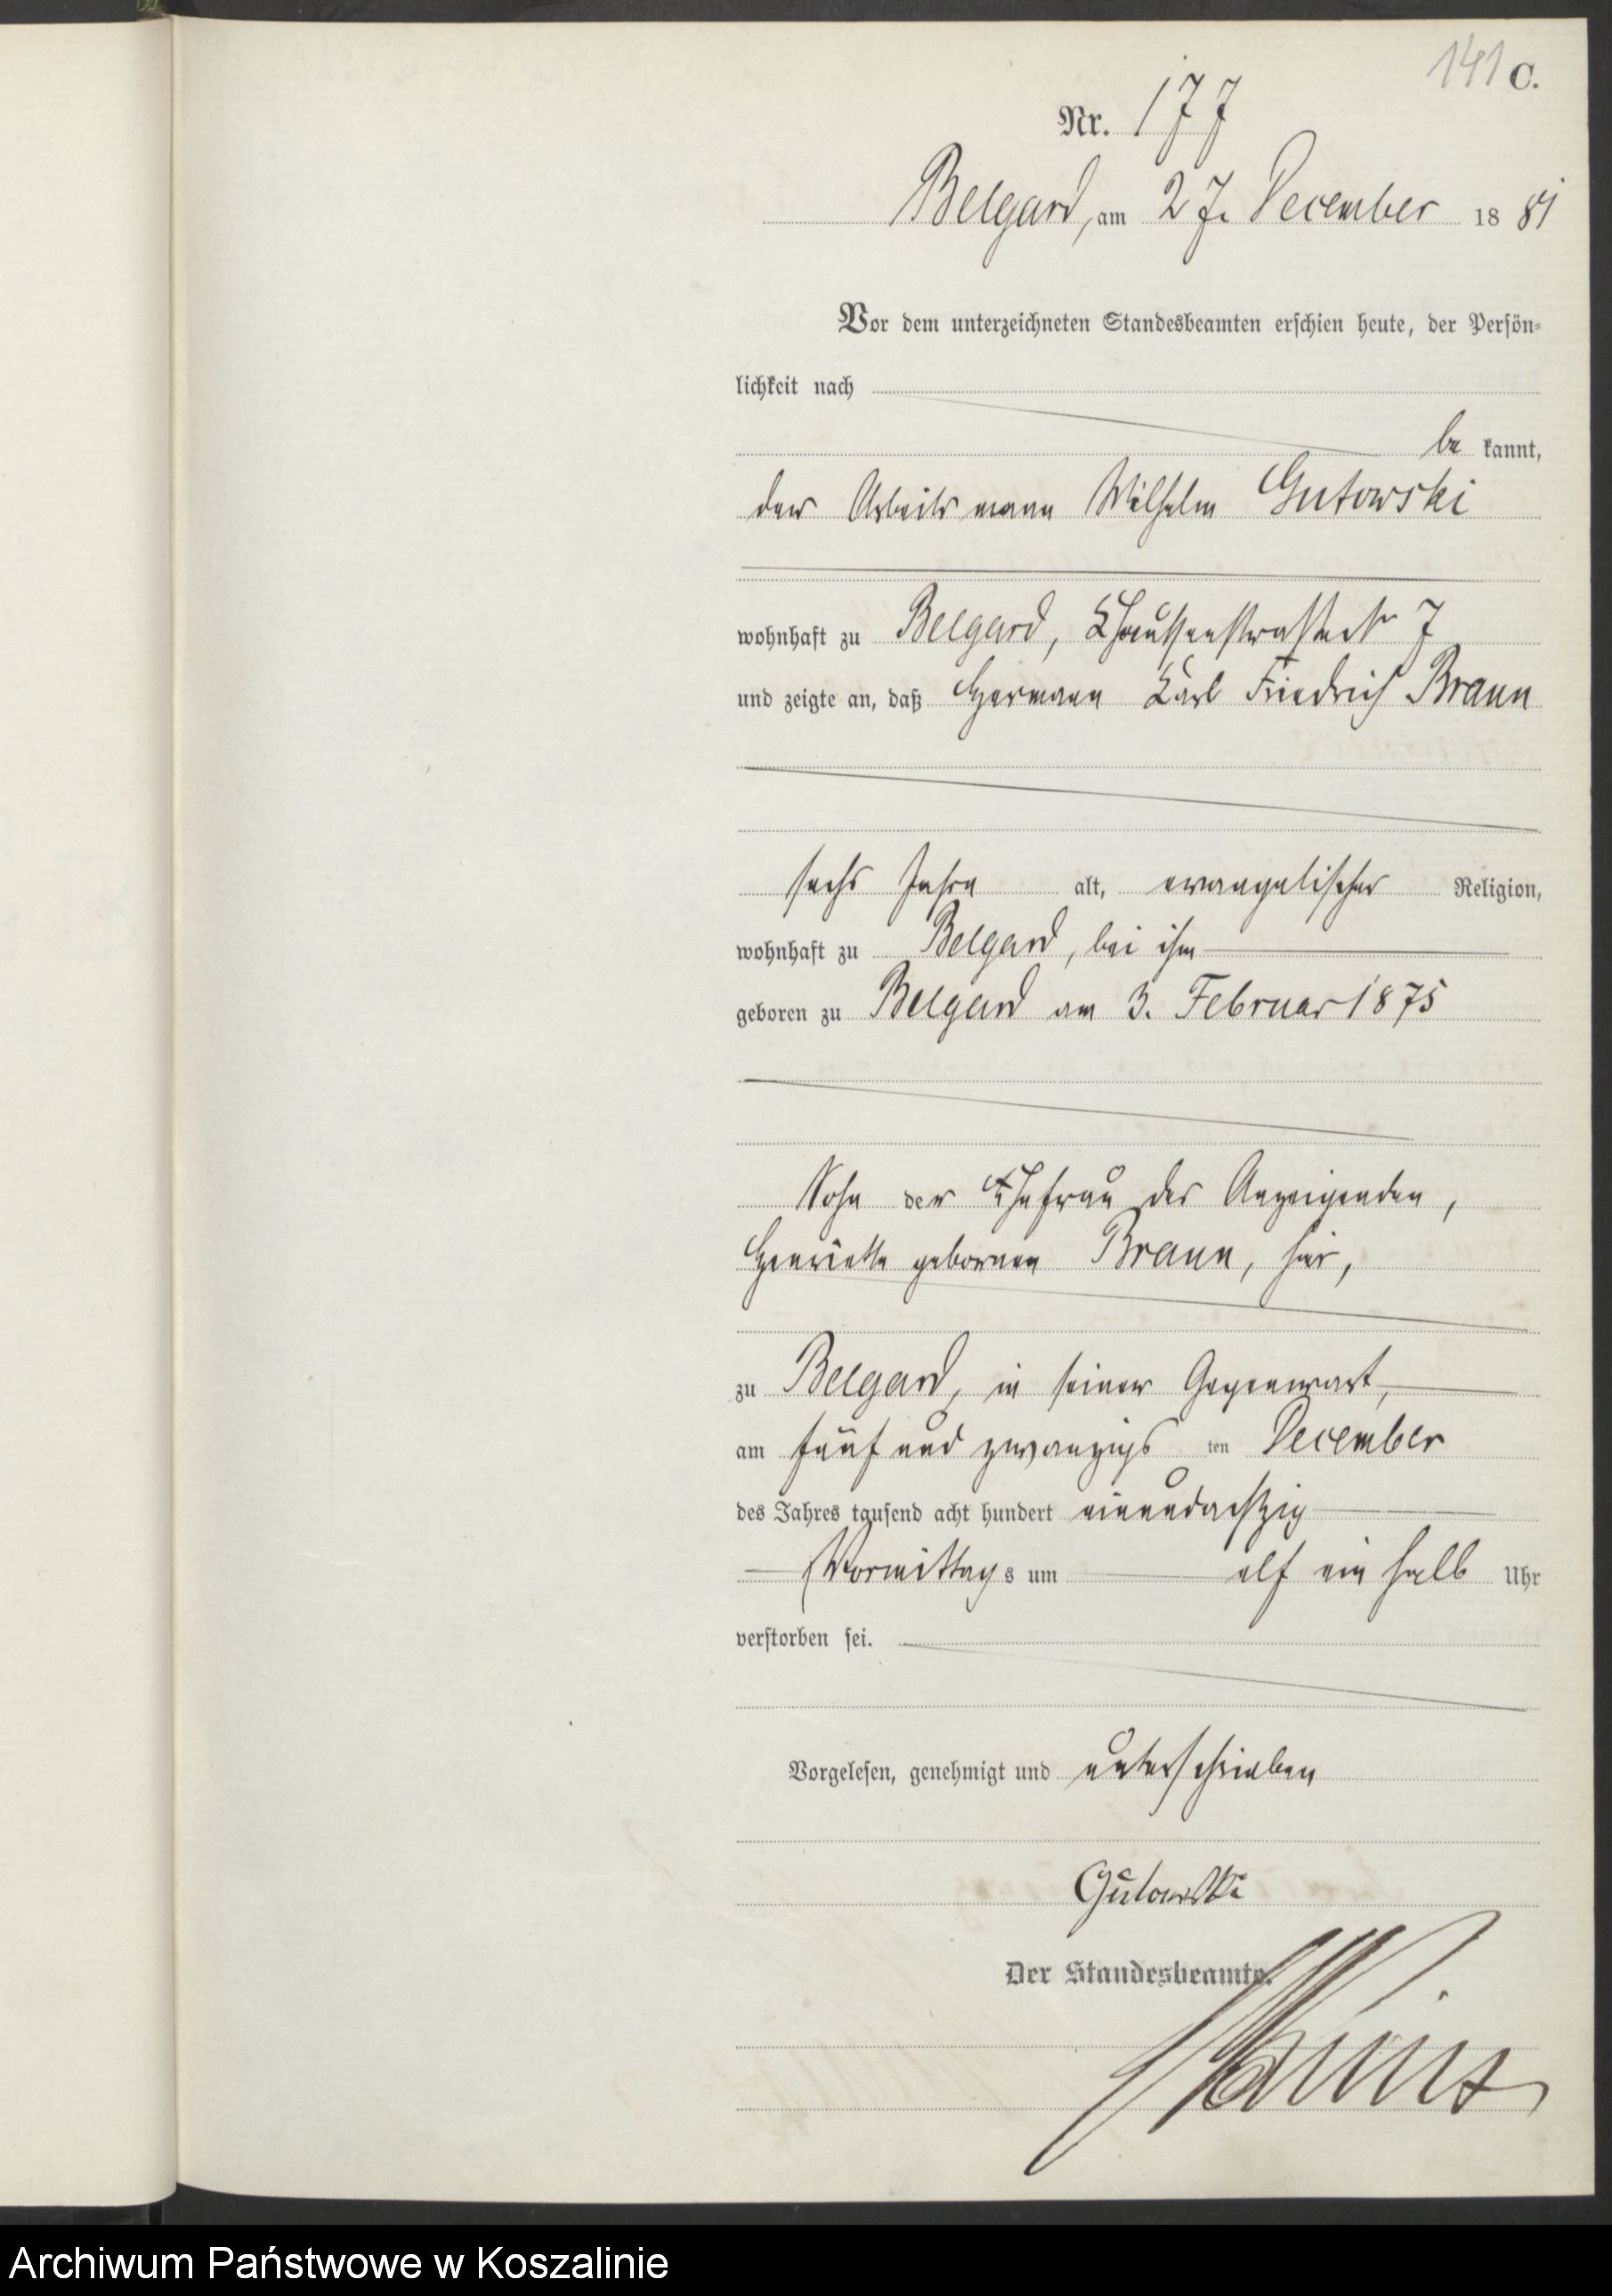 141 C.
Nr. 177
Belgard, am 27. December 1881
Vor dem unterzeichneten Standesbeamten erschien heute, der Persön-
lichkeit nach
be kannt,
der Arbeitsmann Wilhelm Gutowski
wohnhaft zu Belgard, 7
und zeigte an, daß Hermann Karl Friedrich Braun
sechs Jahre alt, evangelischer Religion,
wohnhaft zu Belgard, bei ihm
geboren zu Belgard am 3. Februar 1875
Sohn der Ehefrau des Anzeigenden,
Henriette gebornen Braun, hier,
zu Belgard, in seiner Gegenwart,
am fünf und zwanzigs ten December
des Jahres tausend acht hundert einundachtzig
Vormittags um elf ein halb Uhr
verstorben sei.
Vorgelesen, genehmigt und unterschrieben
Gutowski
Der Standesbeamte.
Archiwum Państwowe w Koszalinie